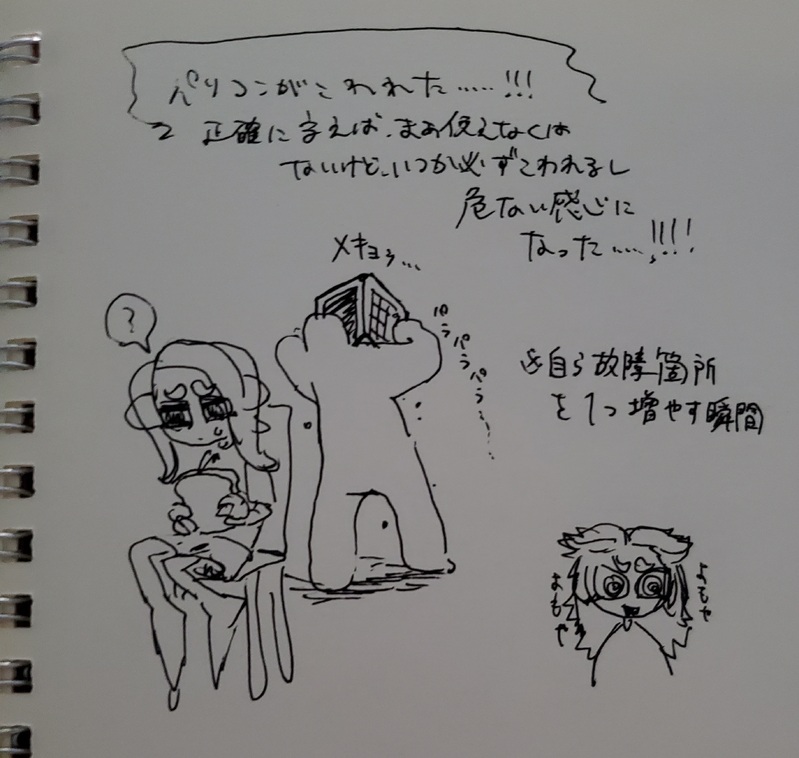 パソコンがこわれた……!!!
正確に言えば、まあ使えなくは
ないけど、いつか必ずこわれるし
危ない感じに
なった……!!!!
メキョぅ…
パラパラパラ……
?
※自ら故障箇所
を1つ増やす瞬間
よもや
よもや